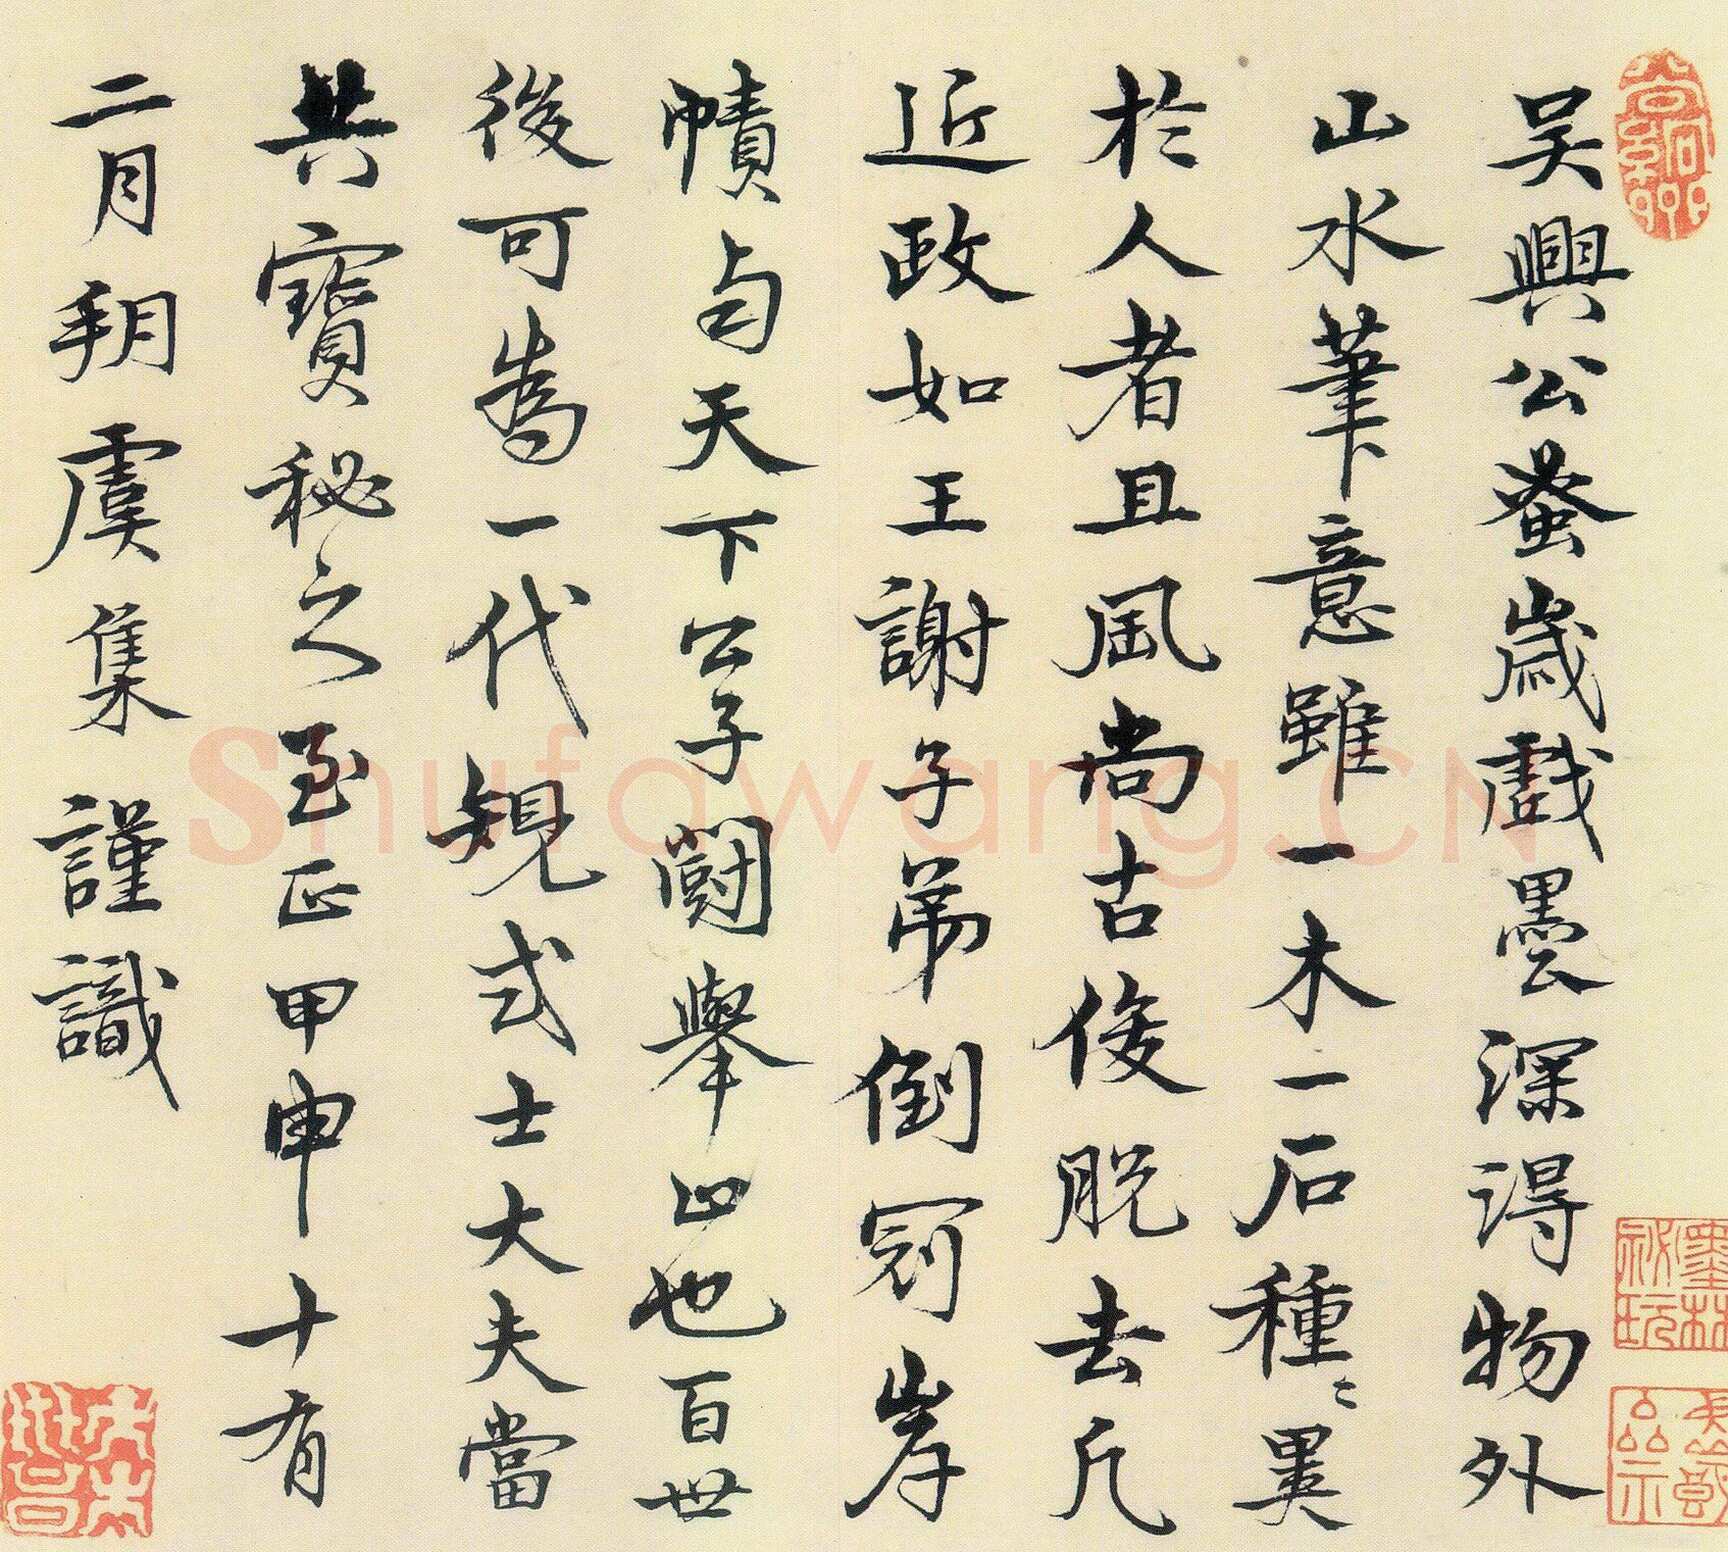 吴興公蚤歲戲墨深得物外
山水筆意雖一木一石種〻異
於人者且風尚古俊脱去凡
近政如王謝子弟倒冠岸
幘与天下公子鬪舉止也百世
後可為一代規式士大夫當
共寶秘之至正甲申十有
二月朔虞集謹識
墨林
秘玩
Shufawang.CN